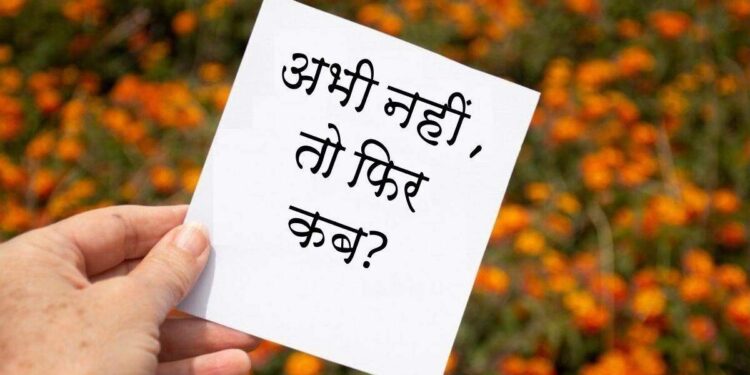 अभी नहीं,
तो फिर
कब?